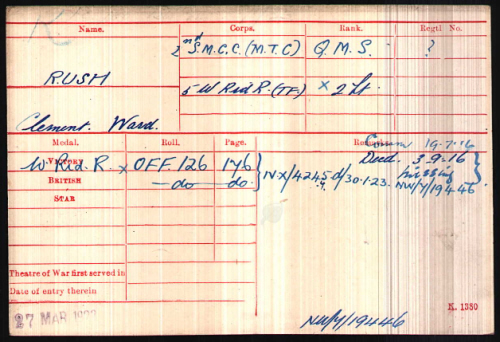 Name. Corps. Rank. Regtl. No.
2nd S.M.C.C. (M.T.C) Q.M.S. - ?
RUSH
5 W Rid R. (TF) x 2 Lt.
Clement. Ward.
Medal. Roll. Page. Remarks
Comm 19-7-16
W. Rid. R. x VICTORY OFF 126 176 Died. 3.9.16
BRITISH do do NX/4245 d/30.1.23. Missing
NW/7/19446
STAR
Theatre of War first served in
Date of entry therein
27 MAR
K. 1380
NW/7/19446